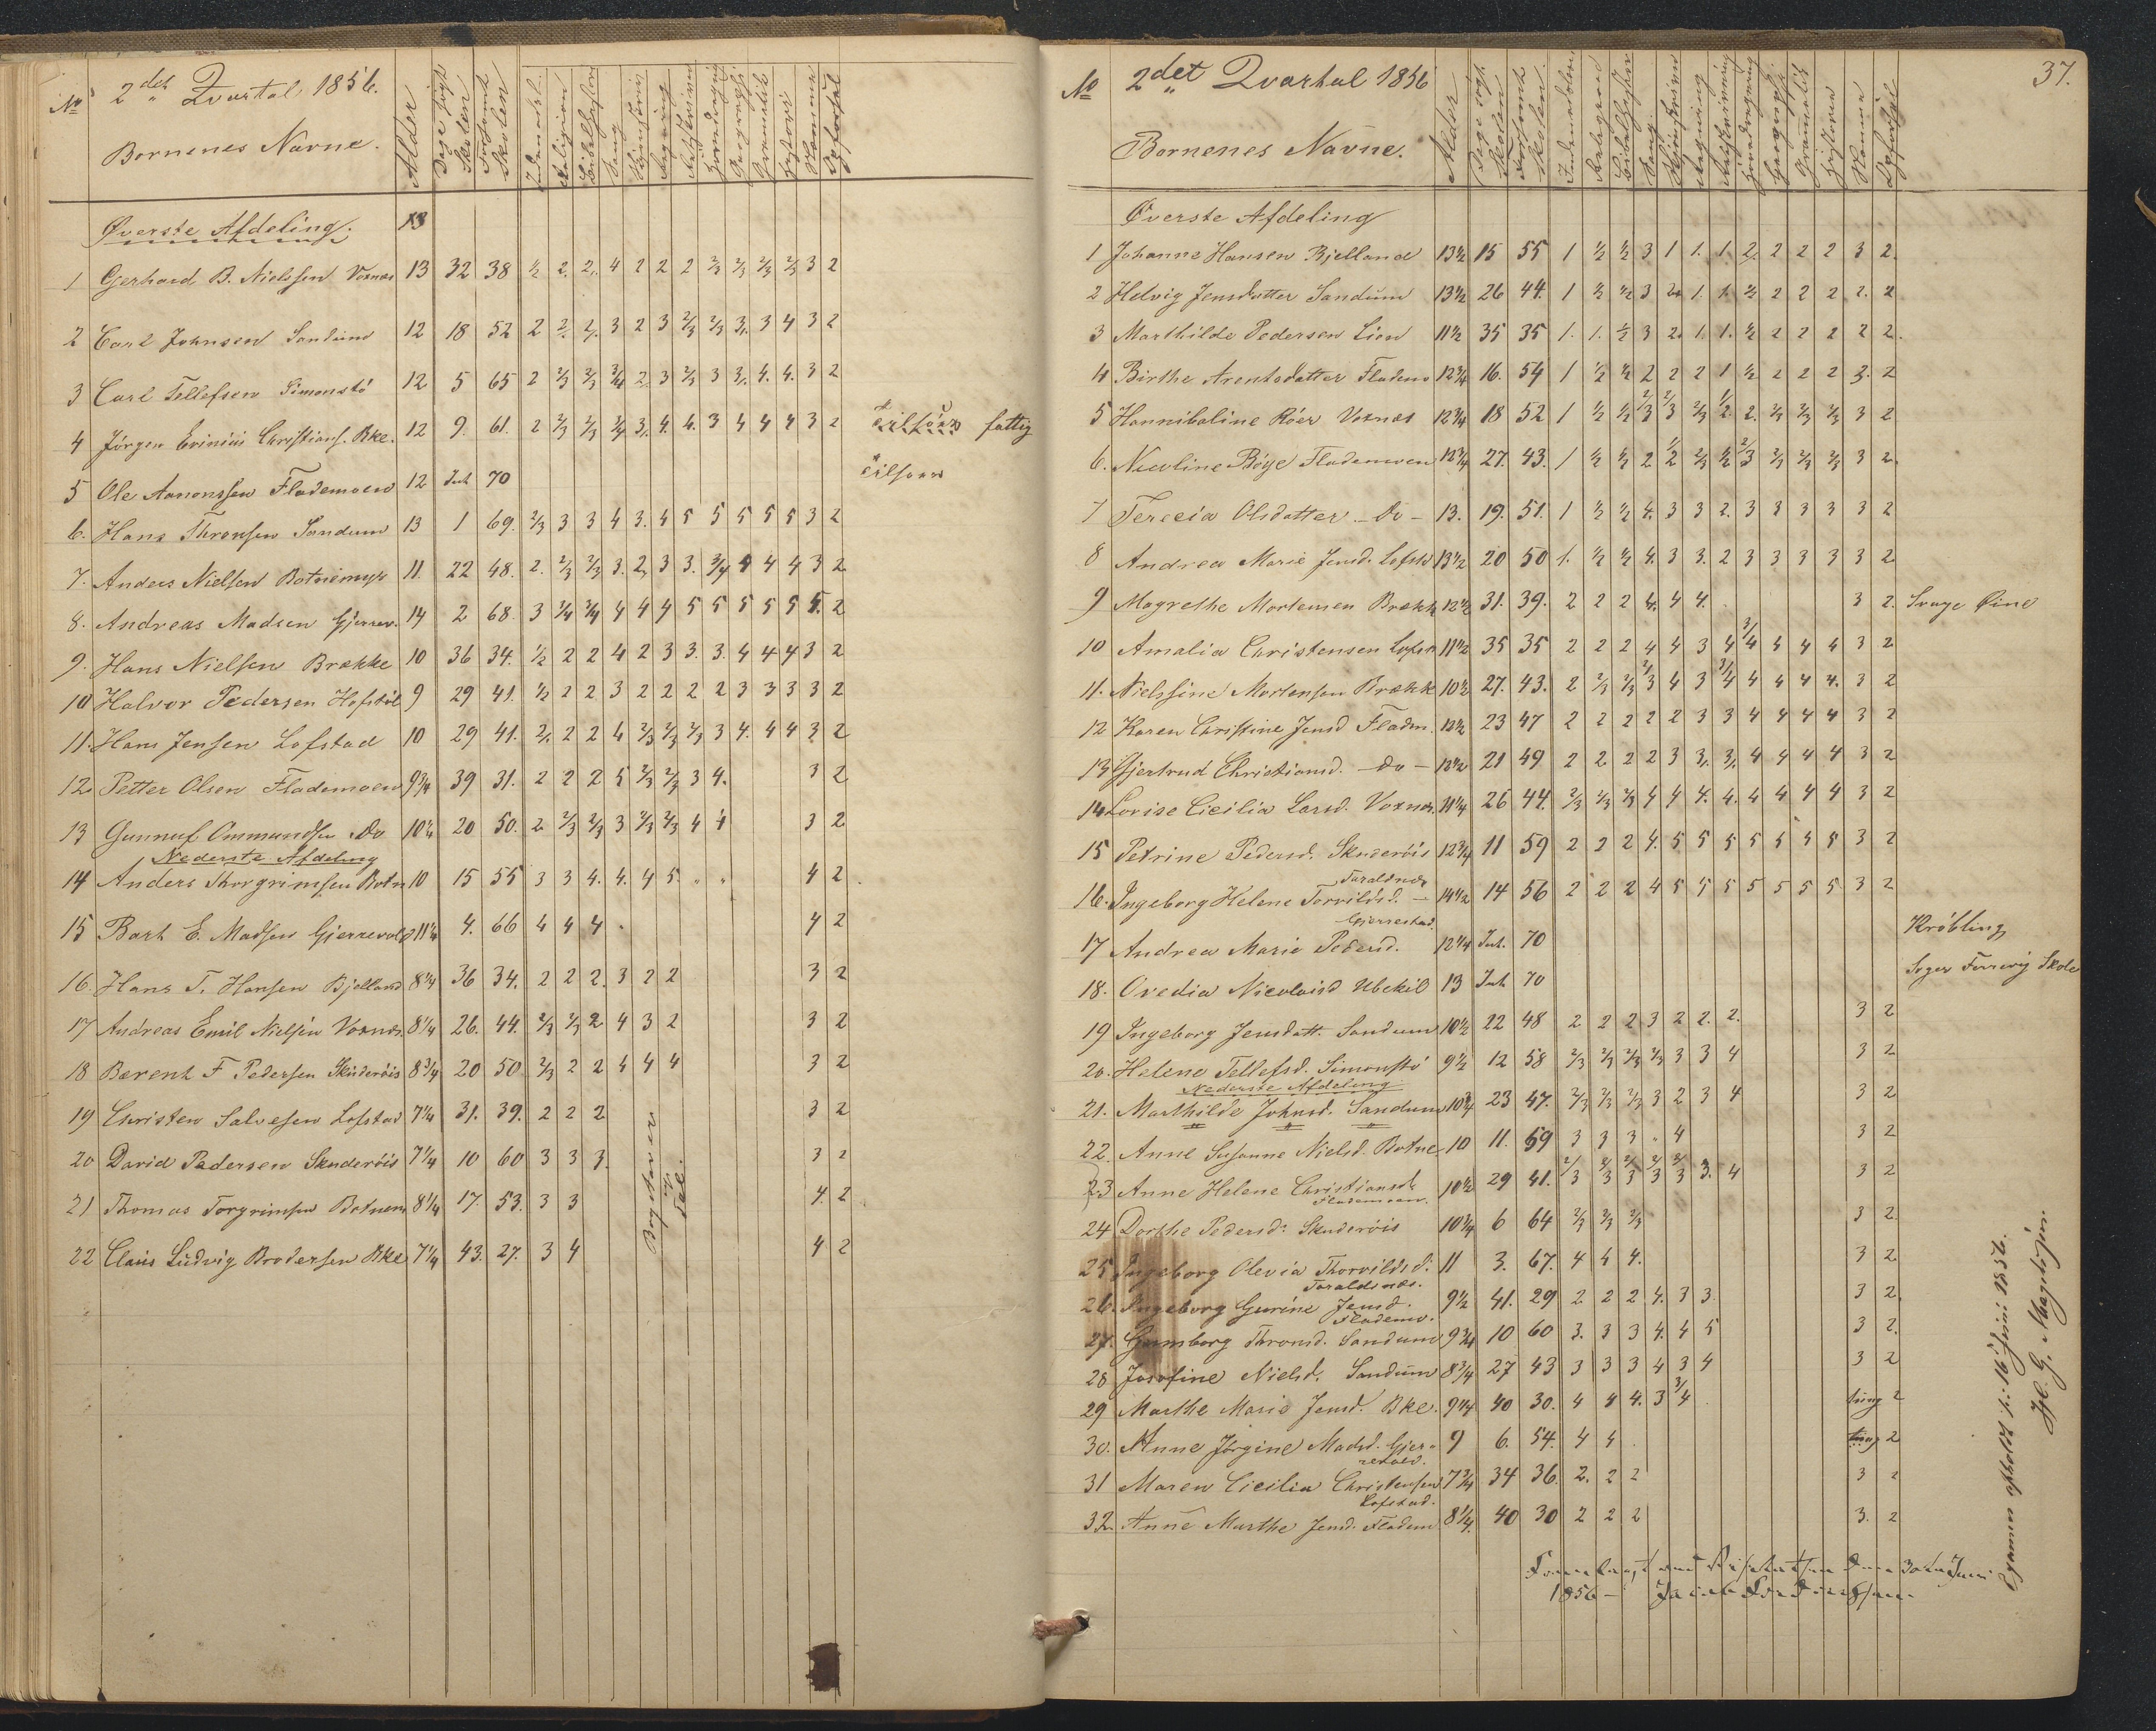 No 2det Qvartal 1856.
Børnenes Navne.
Alder
Dage søgt Skolen
Forsømt Skolen
Religion
Sang
Regning
Geographi
Øverste Afdeling. 13
1 Gerhard B. Nielsen Voxnæs 13 32 38 ½ 2 2. 4 2 2 2 2/3 2/3 2/3 2/3 3 2
2 Carl Johnsen Sandum 12 18 52 2 2. 2. 3 2 3 2/3 2/3 3. 3 4 3 2
3 Carl Tellefsen Simonstø 12 5 65 2 2/3 2/3 3/4 2 3 2/3 3 3. 4. 4. 3 2
4 Jørgen Evinius Christians. Bke. 12 9. 61. 2 2/3 2/3 3/4 3. 4. 4. 3 4 4 4 3 2 fattig
5 Ole Aanonsen Flademoen 12 Int 70
6. Hans Thronsen Sandum 13 1 69. 2/3 3 3 4 3. 4 5 5 5 5 5 3 2
7. Anders Nielsen Botnemyr 11. 22 48. 2. 2/3 2/3 3. 2. 3 3. 3/4 4 4 4 3 2
8. Andreas Madsen Gjerrev. 14 2 68. 3 3/4 3/4 4 4 4 5 5 5 5 5 5. 2
9. Hans Nielsen Brække 10 36 34. ½ 2 2 4 2 3 3. 3. 4 4 4 3 2
10 Halvor Pedersen Hofstøl 9 29 41. ½ 2 2 3 2 2 2 2 3 3 3 3 2
11. Hans Jensen Lofstad 10 29 41. 2. 2 2 4 2/3 2/3 2/3 3 4. 4 4 3 2
12. Petter Olsen Flademoen 9¾ 39 31. 2 2 2 5 2/3 2/3 3 4. 3 2
13 Gunnuf Ommundsen Do 10¼ 20 50. 2 2/3 2/3 3 2/3 2/3 4 4 3 2
Nederste Afdeling
14 Anders Thorgrimsen Botn 10 15 55 3 3 4. 4. 4 5. " " 4 2
15 Bart E. Madsen Gjerrevold 11¼ 4. 66 4 4 4 4 2
16. Hans T. Hansen Bjelland 8¼ 36 34. 2 2 2. 3 2 2 3 2
17 Andreas Emil Nielsen Voxnæs. 8¼ 26. 44. 2/3 2/3 2 4 3 2 3 2
18 Bærent F Pedersen Skuderöis 8¾ 20 50. 2/3 2 2 4 4 4 3 2
19 Christen Salvesen Lofstad 7¼ 31. 39. 2 2 2 3 2
20 David Pedersen Skuderöis 7¼ 10 60 3 3 3. 3 2
21 Thomas Torgrimsen Botnem 8¼ 17. 53. 3 3 4. 2
22 Claus Ludvig Brodersen Bke 7¼ 43. 27. 3 4 4 2
37.
No 2det Qvartal 1856
Børnenes Navne.
Alder
Dage søgt Skolen
Forsømt Skolen.
Sang.
Regning
Historie
Øverste Afdeling
1 Johanne Hansen Bjelland 13½ 15 55 1 ½ ½ 3 1 1. 1. 2. 2 2 2 3 2.
2 Helvig Jensdatter Sandum 13½ 26 44. 1 ½ ½ 3 2. 1. 1. ½ 2 2 2 2. 2
3 Marthilde Pedersen Lien 11½ 35 35 1. 1. ½ 3 2. 1. 1. ½ 2 2 2 2 2.
4 Birthe Arentsdatter Fladem 12¾ 16. 54 1 ½ ½ 2 2 2 1 ½ 2 2 2 3. 2
5 Hannibaline Röer Voxnæs 12¾ 18 52 1 ½ ½ 2/3 2/3 2/3 ½ 2. 2/3 2/3 2/3 3 2
6. Nicoline Böye Flademoen 12¾ 27. 43. 1 ½ ½ 2 ½ 2/3 ½ 2/3 2/3 2/3 2/3 3 2.
7 Terecia Olsdatter - Do - 13. 19. 51. 1 ½ ½ 4. 3 3 2. 3 3 3 3 3 2
8 Andrea Marie Jensd. Lofstd 13½ 20 50 1. ½ ½ 4. 3 3. 2 3 3 3 3 3 2
9 Magrethe Mortensen Brækk 12½ 31. 39. 2 2 2 4. 4 4. 3 2. Svage Öine
10 Amalia Christensen Lofst 11½ 35 35 2 2 2 4 4 3 4 3/4 4 4 4 3 2
11. Nielsine Mortensen Brække 10½ 27. 43. 2 2/3 2/3 2/3 4 3 3/4 4 4 4 4. 3 2
12 Karen Christine Jensd Fladm. 12½ 23 47 2 2 2 2 2 3 3 4 4 4 4 3 2
13 Gjertrud Christiansd. - do - 12½ 21 49 2 2. 2 2 3 3. 3. 4 4 4 4 3 2
14 Lovise Cicilia Larsd. Voxnæs. 11¼ 26 44. 2/3 2/3 2/3 4 4 4. 4. 4 4 4 4 3 2
15 Petrine Pedersd. Skuderöis 12¾ 11 59 2 2 2 4. 5 5 5 5 5 5 5 3 2
16. Ingeborg Helene Torvildsd. - Taraldnæs 14½ 14 56 2 2 2 4 5 5 5 5 5 5 5 3 2
17 Andrea Marie Pedersd. Gjerrestad. 12¼ Int. 70 Krøbling,
18. Ovedia Nicolaisd Ubekil 13 Int 70 Søger Fornevig Skole
19 Ingeborg Jensdatt. Sandum 10½ 22 48 2 2 2 3 2 2. 2. 3 2
20. Helene Tellefsd. Simonstö 9½ 12 58 2/3 2/3 2/3 2/3 3 3 4 3 2
Nederste Afdeling
21. Marthilde Johnsd. Sandum 10¾ 23 47. 2/3 2/3 2/3 3 2 3 4 3 2
22. Anne Susanne Nielsd. Botne 10 11. 59 3 3 3 " 4 3 2
23 Anne Helene Christiansd. Flademoen. 10½ 29 41. 2/3 2/3 2/3 2/3 2/3 3. 4 3 2
24 Dorthe Pedersd. Skuderöis 10¾ 6 64 2/3 2/3 2/3 3 2.
25 Ingeborg Olevia Thorvildsd. Taraldsnæs. 11 3. 67. 4 4 4. 3 2
26. Ingeborg Gurine Jensd. Fladems. 9½ 41. 29 2 2 2 4. 3 3 3 2.
27. Gumborg Thronsd. Sandum 9¾ 10 60 3. 3 3 4. 4 5 3 2.
28 Josefine Nielsd. Sandum 8¾ 27 43 3 3 3 4 3 4 3 2
29 Marthe Marie Jensd. Bke. 9¼ 40 30. 4 4 4. 3 3/4 ting 2
30. Anne Jörgine Madsd. Gjerrevold. 9 6. 54. 4 4 2
31 Maren Cicilia Christensen Lofstad. 7¾ 34 36. 2. 2 2 3 2
32. Anne Marthe Jensd. Fladem 8¼ 40 30 2 2 2 3. 2
1856 -
Examen afholdt d. 16 Juni 1856.